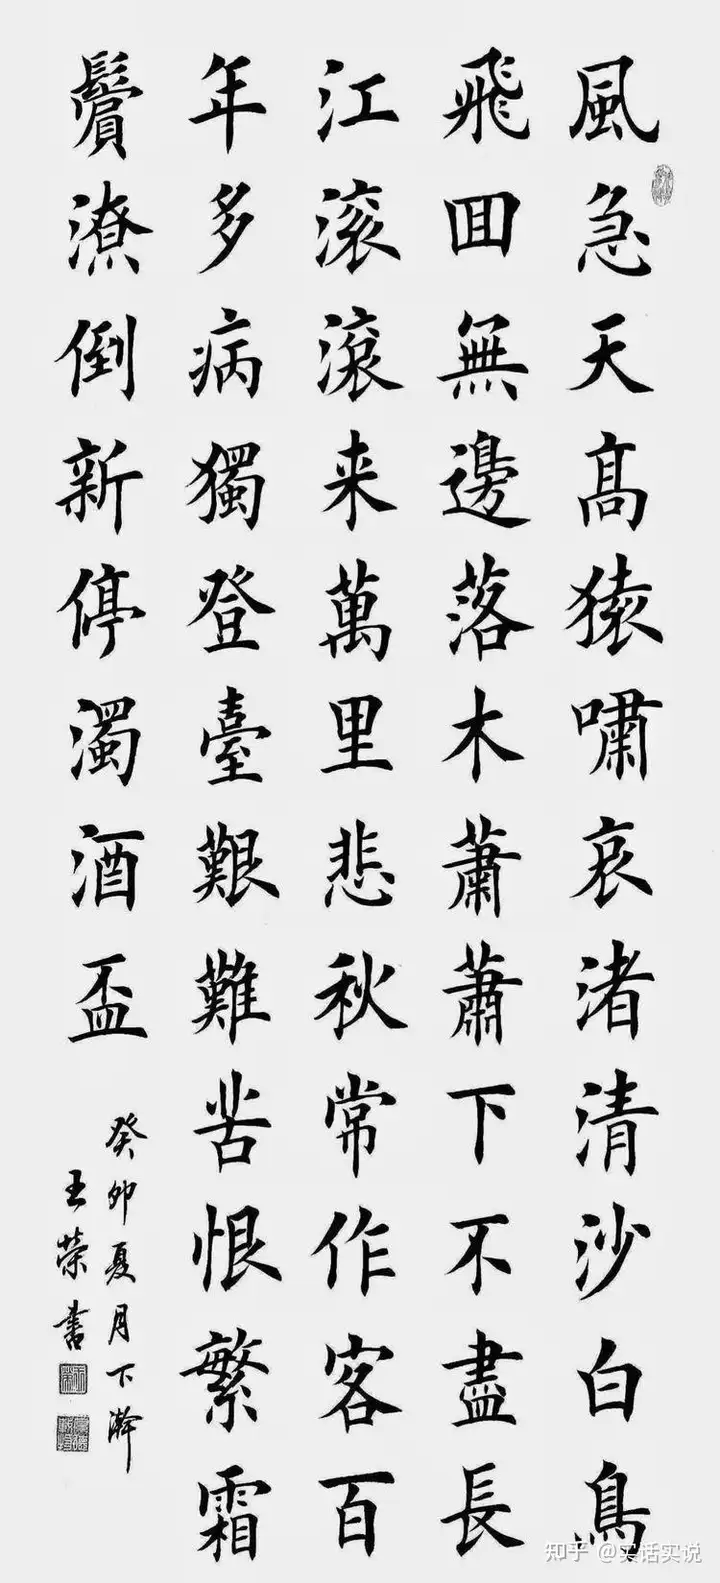 風急天髙猿嘯哀渚清沙白鳥
飛囬無邊落木蕭蕭下不盡長
江滚滾来萬里悲秋常作客百
年多病獨登臺艱難苦恨繁霜
鬢潦倒新停濁酒盃
癸卯夏月下澣
王榮書
知乎 @实话实说